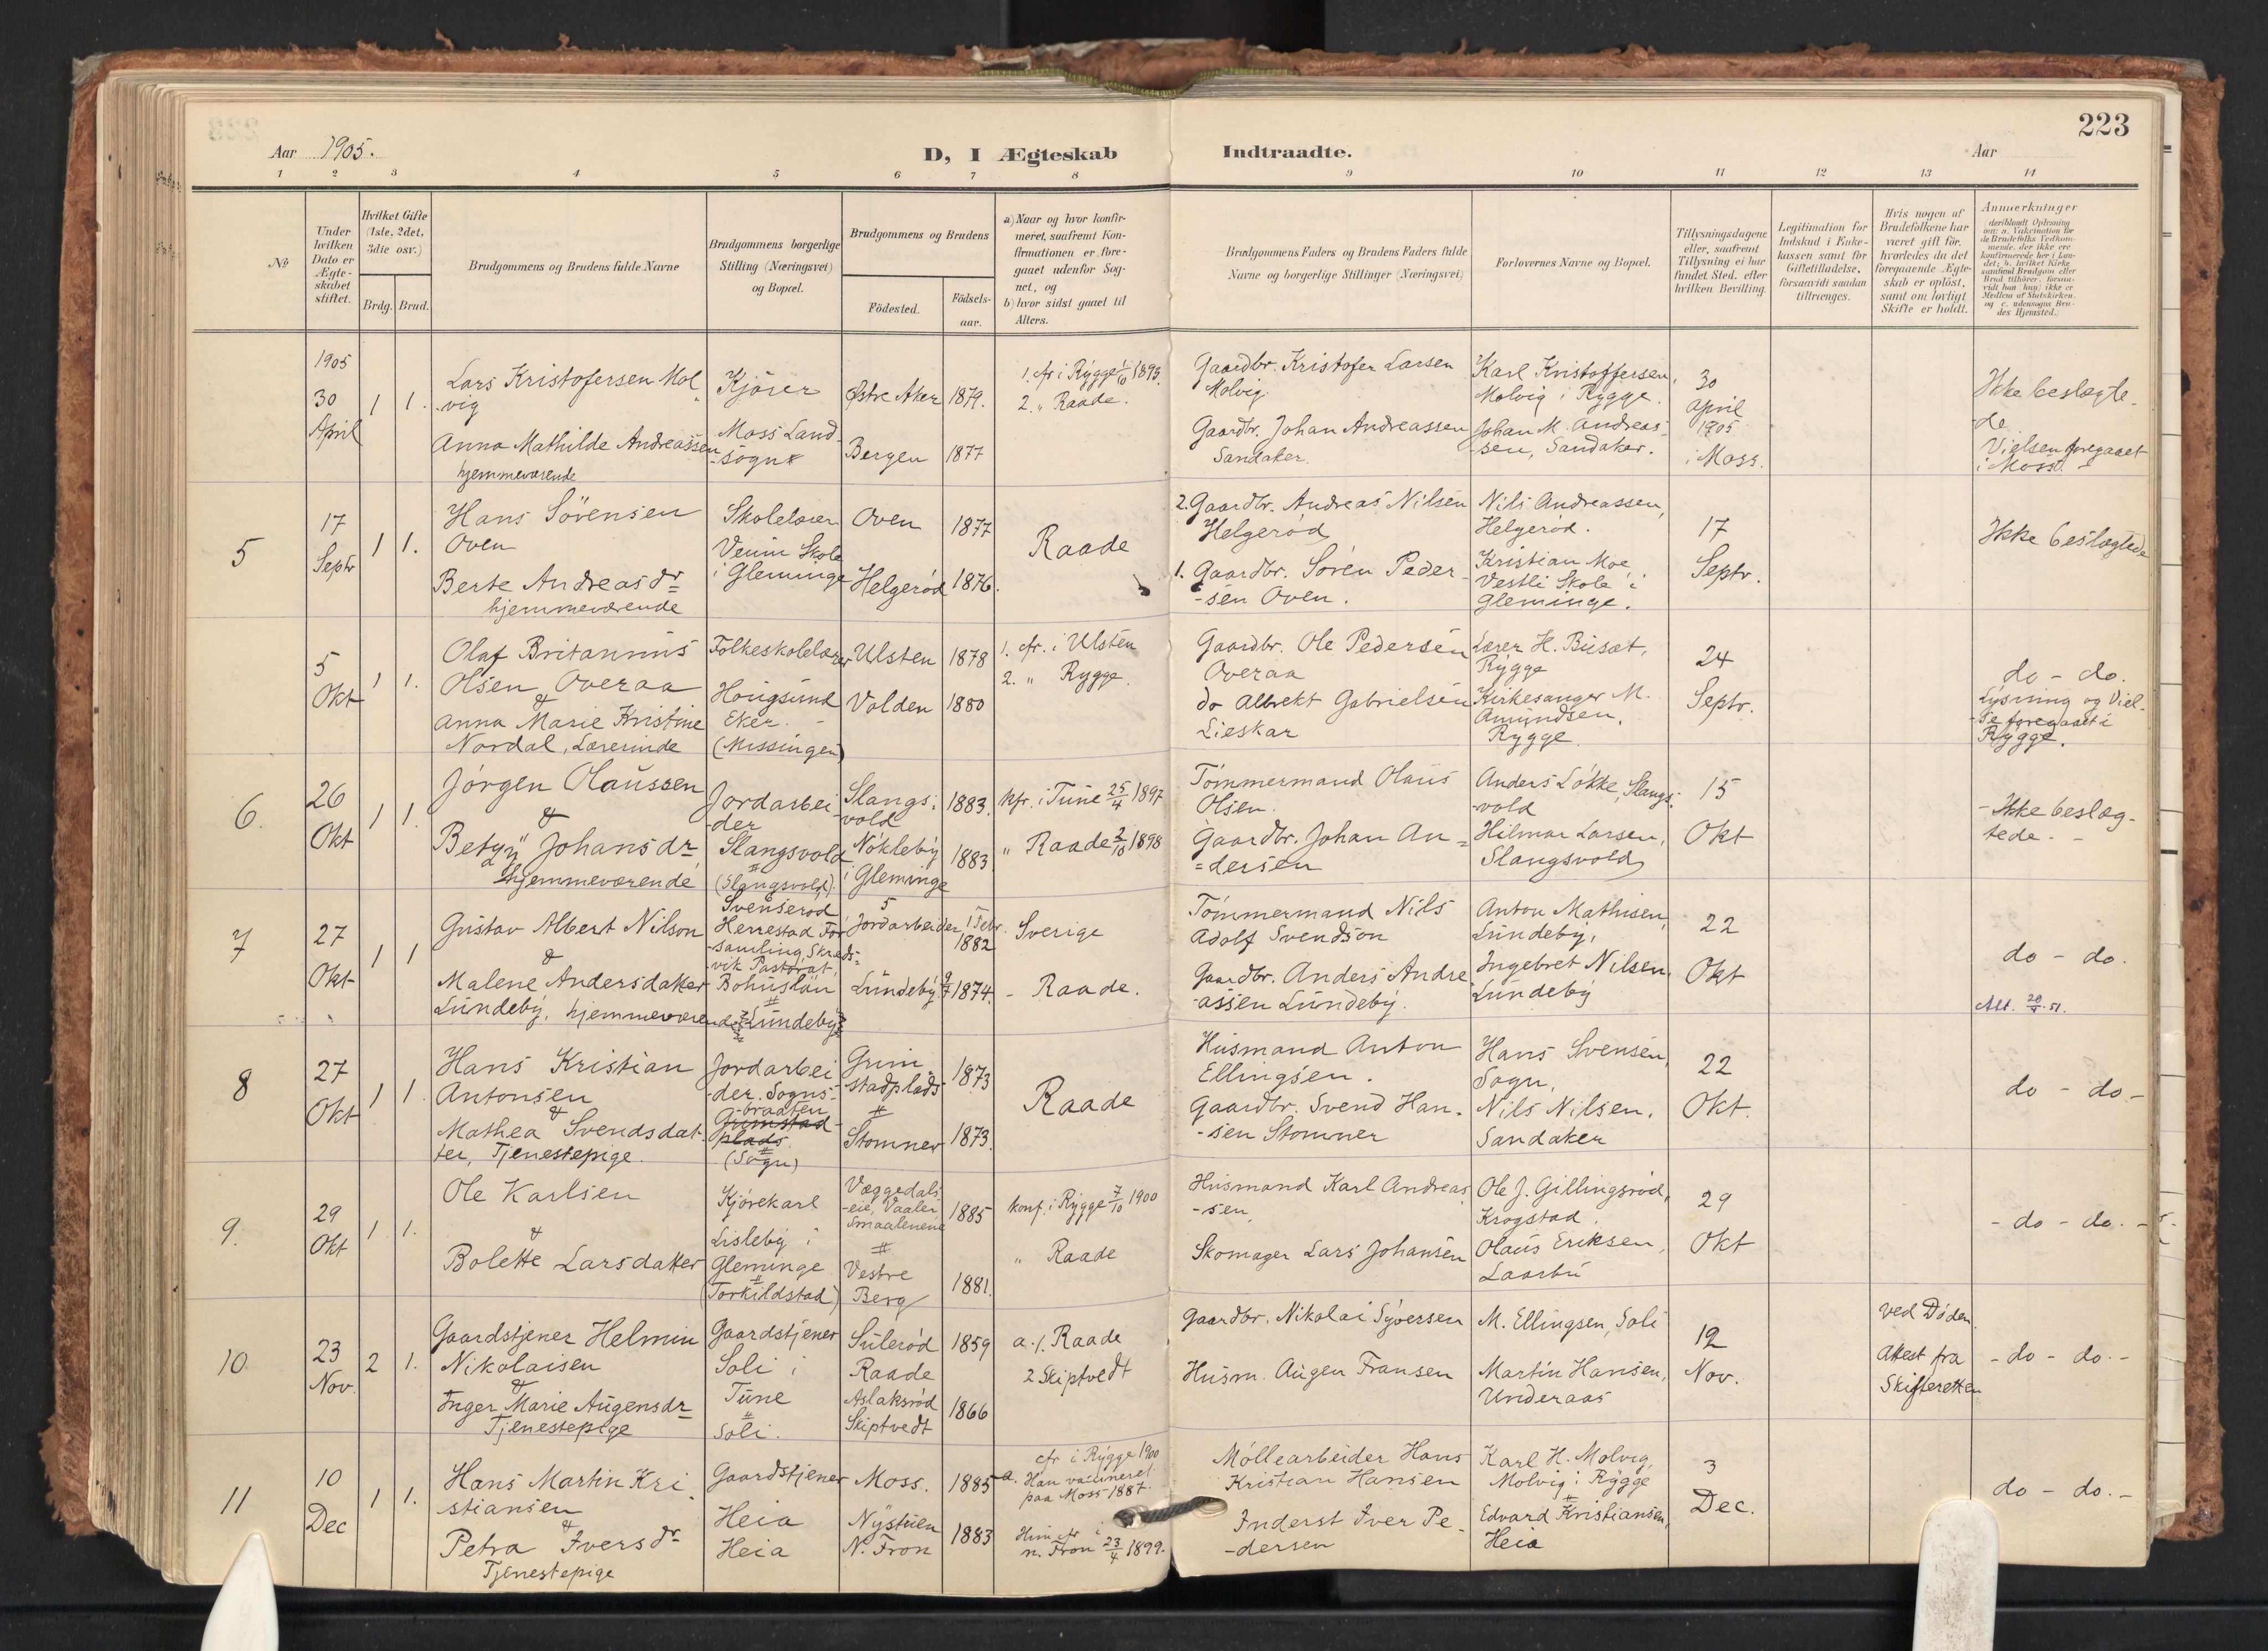 223
Aar 1905.
D, I Ægteskab Indtraadte.
Aar
1 2 3 4 5 6 7 8 9 10 11 12 13 14
No
Under
hvilken
Dato er
Ægte-
skabet
stiftet.
Hvilket Gifte
(1ste, 2det,
3die osv.)
Brdg. Brud.
Brudgommens og Brudens fulde Navne
Brudgommens borgerlige
Stilling (Næringsvei)
og Bopæl.
Brudgommens og Brudens
Födested.
Födsels-
aar.
a) Naar og hvor konfir-
meret, saafremt Kon-
firmationen er fore-
gaaet udenfor Sog-
net, og
b) hvor sidst gaaet til
Alters.
Brudgommens Faders og Brudens Faders fulde
Navne og borgerlige Stillinger (Næringsvei)
Forlovernes Navne og Bopæl.
Tillysningsdagene
eller, saafremt
Tillysning ei har
fundet Sted, efter
hvilken Bevilling.
Legitimation for
Indskud i Enke-
kassen samt for
Giftetilladelse,
forsaavidt saadan
tiltrænges.
Hvis nogen af
Brudefolkene har
været gift för,
hvorledes da det
foregaaende Ægte-
skab er oplöst,
samt om lovligt
Skifte er holdt.
Anmærkninger
deriblandt Oplysning
om: a. Vakcination for
de Brudefolks Vedkom-
mende, der ikke ere
konfirmerede her i Lan-
det; b. hvilket Kirke-
samfund Brudgom eller
Brud tilhörer, forsaa-
vidt han (hun) ikke er
Medlem af Statskirken,
og c. udensogns Bru-
des Hjemsted.)
1905
30
April
1 1.
Lars Kristofersen Mol
-vig
Anna Mathilde Andreassen
hjemmeværende
Kjörer
Moss Land-
-sogn
Østre Aker 1879.
Bergen 1877
1. cfr i Rygge 1/10 1893.
2. " Raade.
Gaardbr. Kristofer Larsen
Molvig.
Gaardbr. Johan Andreassen
Sandaker.
Karl Kristoffersen,
Molvig i Rygge.
Johan M. Andreas-
-sen, Sandaker.
30
April
1905
i Moss.
Ikke beslægte-
-de
Vielsen foregaaet
i Moss. -
5
17
Septr
1 1.
Hans Sörensen
Oven
Berte Andreasdr
hjemmeværende
Skolelærer
Veum Skole
i Gleminge
Oven 1877
Helgerød 1876.
Raade
2. Gaardbr. Andreas Nilsen
Helgerød
1. Gaardbr. Søren Peder-
-sen Oven.
Nils Andreassen,
Helgerød.
Kristian Moe
Vestli Skole i
Gleminge.
17
Septr.
Ikke beslægtede
5
Okt
1 1.
Olaf Britannus
Olsen Overaa
&
Anna Marie Kristine
Nordal, Lærerinde
Folkeskolelærer
Hougsund
Eker. -
(Missingen)
Ulsten 1878
Volden 1880
1. cfr. i Ulsten
2. " Rygge.
Gaardbr. Ole Pedersen
Overaa
do Albrekt Gabrielsen
Lieskar
Lærer H. Busæt,
Rygge
Kirkesanger M.
Amundsen,
Rygge.
24
Septr.
do - do.
Lysning og Viel-
-se foregaaet i
Rygge.
6.
26
Okt
1 1.
Jörgen Olaussen
&
Betzy Johansdr,
hjemmeværende
Jordarbei
-der
Slangsvold
(Slangsvold)
Slangs-
vold
1883.
Nökleby
i Gleminge
1883
kfr. i Tune 25/4 1897
" Raade 2/10 1898
Tömmermand Olaus
Olsen.
Gaardbr. Johan An=
=dersen
Anders Løkke, Slangs-
-vold
Hilmar Larsen,
Slangsvold
15
Okt
- Ikke beslæg-
tede. -
7
27
Okt
1 1
Gustav Albert Nilson
&
Malene Andersdatter
Lundeby, hjemmeværende
Svenserød
Herrestad For
-samling, Skreds-
-vik Pastorat,
Bohuslän
Lundeby
Jordarbeider, 5 Febr.
1882
Lundeby 9/7 1874.
Sverige
- Raade.
Tömmermand Nils
Adolf Svendson
Gaardbr. Anders Andre
-assen Lundeby.
Anton Mathisen,
Lundeby,
Ingebret Nilsen,
Lundeby
22
Okt
do - do.
8
27
Okt
1 1.
Hans Kristian
Antonsen
&
Mathea Svendsdat-
ter, Tjenestepige.
Jordarbei
-der. Sogns-
-braaten
Grimstad-
plads
(Sogn)
Grim-
stadplads 1873
Stomner 1873.
Raade
Husmand Anton
Ellingsen.
Gaardbr. Svend Han-
-sen Stomner
Hans Svensen,
Sogn,
Nils Nilsen.
Sandaker
22
Okt.
do - do -
9.
29
Okt
1 1.
Ole Karlsen
&
Bolette Larsdatter
Kjörekarl
Lisleby i
Gleminge
(Torkildstad)
Væggedals
-eie, Vaaler
Smaalenene
1885
Vestre
Berg
1881.
konf. i Rygge 7/10 1900
" Raade
Husmand Karl Andreas
-sen,
Skomager Lars Johansen
Ole J. Gillingsrød,
Krogstad.
Olaus Eriksen,
Laarbu
29
Okt
- do - do. -
10.
23
Nov.
2 1.
Gaardstjener Helmin
Nikolaisen
&
Inger Marie Augensdr
Tjenestepige
Gaardstjener
Soli i
Tune
Soli.
Sulerød 1859
Raade
Aslaksrød
Skiptvedt
1866
a. 1. Raade
2 Skiptvedt
Gaardbr. Nikolai Syversen
Husm. Augen Fransen
M. Ellingsen, Soli
Martin Hansen,
Underaas
12
Nov.
ved Døden.
Attest fra
Skifteretten
- do - do. -
11
10
Dec
1 1.
Hans Martin Kri-
stiansen
&
Petra Iversdr
Tjenestepige
Gaardstjener
Heia
Heia
Moss. 1885
Nystuen
N. Fron
1883
cfr i Rygge 1900
a. Han vaccineret
paa Moss 1887.
Hun cfr i
n. Fron 23/4 1899.
Møllearbeider Hans
Kristian Hansen
Inderst Iver Pe-
-dersen
Karl H. Molvig,
Molvig i Rygge
Edvard Kristiansen,
Heia
3
Dec.
do - do. -